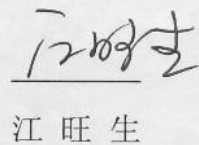 江旺生
江旺生